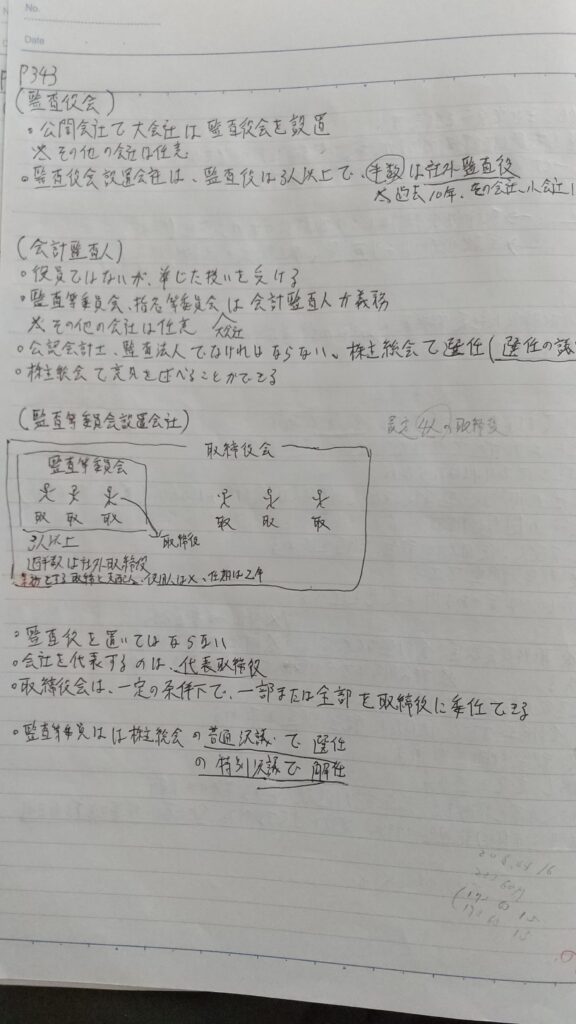 No.
Date
P343
(監査役会)
○公開会社で大会社は監査役会を設置
※その他の会社は任意
○監査役会設置会社は、監査役は3人以上で、半数は社外監査役
※過去10年、その会社、
(会計監査人)
○役員ではないが、準じた扱いを受ける
○監査等委員会、指名等委員会は会計監査人が義務
大会社
※その他の会社は任意
○公認会計士、監査法人でなければならない。株主総会で選任(選任の議
○株主総会で意見を述べることができる
(監査等委員会設置会社)
4人の取締役
取締役会
監査等委員会
取 取 取 取 取 取
3人以上
取締役
過半数は社外取締役
任期は2年
○監査役を置いてはならない
○会社を代表するのは、代表取締役
○取締役会は、一定の条件下で、一部または全部を取締役に委任できる
○監査等委員は株主総会の普通決議で選任
の特別決議で解任